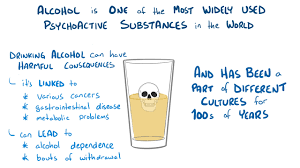 ALCOHOL is ONE of the MOST WIDELY USED
PSYCHOACTIVE SUBSTANCES in the WORLD
DRINKING ALCOHOL can have
HARMFUL CONSEQUENCES
it's LINKED to
* various cancers
* gastrointestinal disease
* metabolic problems
can LEAD to
* alcohol dependence
* bouts of withdrawal
AND HAS BEEN a
PART of DIFFERENT
CULTURES for
100s of YEARS